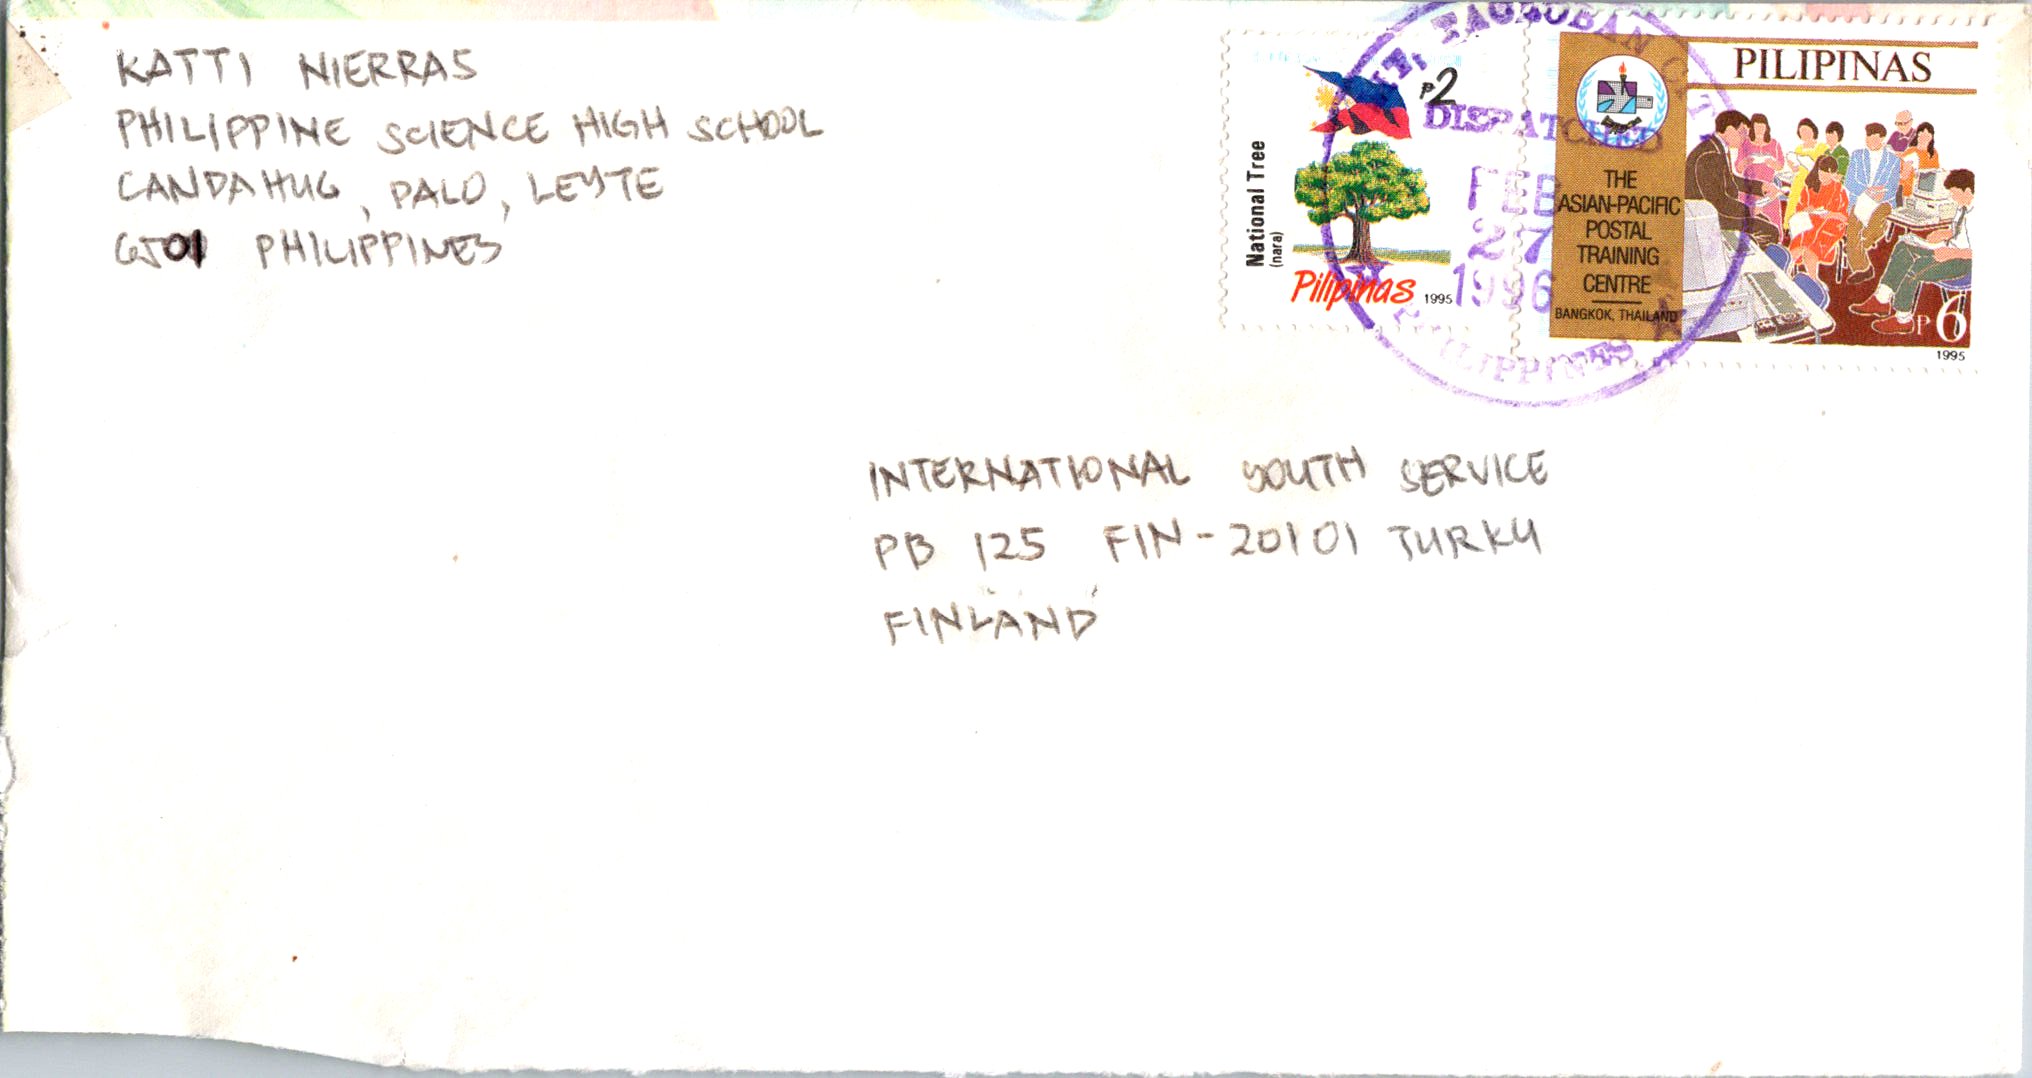 KATTI NIERRAS
PHILIPPINE SCIENCE HIGH SCHOOL
CANDAHUG, PALO, LEYTE
6501 PHILIPPINES
National Tree
(nara)
₱2
Pilipinas 1995
TACLOBAN CITY
DISPATCHED
FEB
27
1996
PHILIPPINES
PILIPINAS
THE
ASIAN-PACIFIC
POSTAL
TRAINING
CENTRE
BANGKOK, THAILAND
P6
1995
INTERNATIONAL YOUTH SERVICE
PB 125 FIN-20101 TURKU
FINLAND